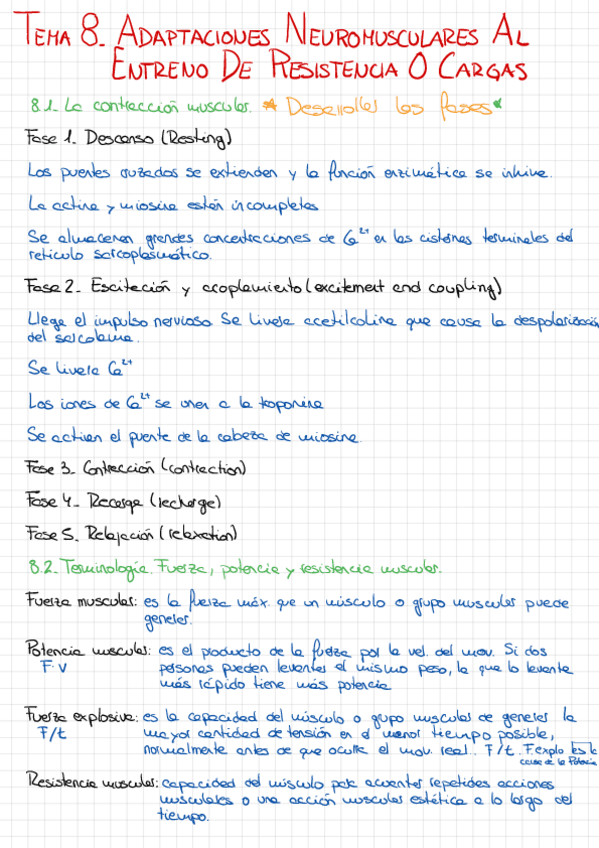 TEMA 8. ADAPTACIONES NEUROMUSCULARES AL
ENTRENO DE RESISTENCIA O CARGAS
8.1. La contracción muscular. * Desarrollar las fases *
Fase 1. Descanso (Resting)
Los puentes cruzados se extienden y la función enzimática se inhive.
La actina y miosina están incompletas
Se almacenan grandes concentraciones de Ca²⁺ en las cisternas terminales del
retículo sarcoplasmático.
Fase 2. Escitación y acoplamiento (excitement and coupling)
Llega el impulso nervioso. Se livera acetilcolina que causa la despolarización
del sarcolema.
Se livera Ca²⁺
Los iones de Ca²⁺ se unen a la troponina
Se activan el puente de la cabeza de miosina.
Fase 3. Contracción (contraction)
Fase 4. Recarga (recharge)
Fase 5. Relajación (relaxation)
8.2. Terminología. Fuerza, potencia y resistencia muscular.
Fuerza muscular: es la fuerza máx. que un músculo o grupo muscular puede
generar.
Potencia muscular: es el producto de la fuerza por la vel. del mov. Si dos
F·V personas pueden levantar el mismo peso, la que lo levante
más rápido tiene más potencia
Fuerza explosiva: es la capacidad del músculo o grupo muscular de generar la
F/t mayor cantidad de tensión en el menor tiempo posible,
normalmente antes de que ocurra el mov. real. F/t. F.explo es la
causa de la Potencia
Resistencia muscular: capacidad del músculo para aguantar repetidas acciones
musculares o una acción muscular estática a lo largo del
tiempo.